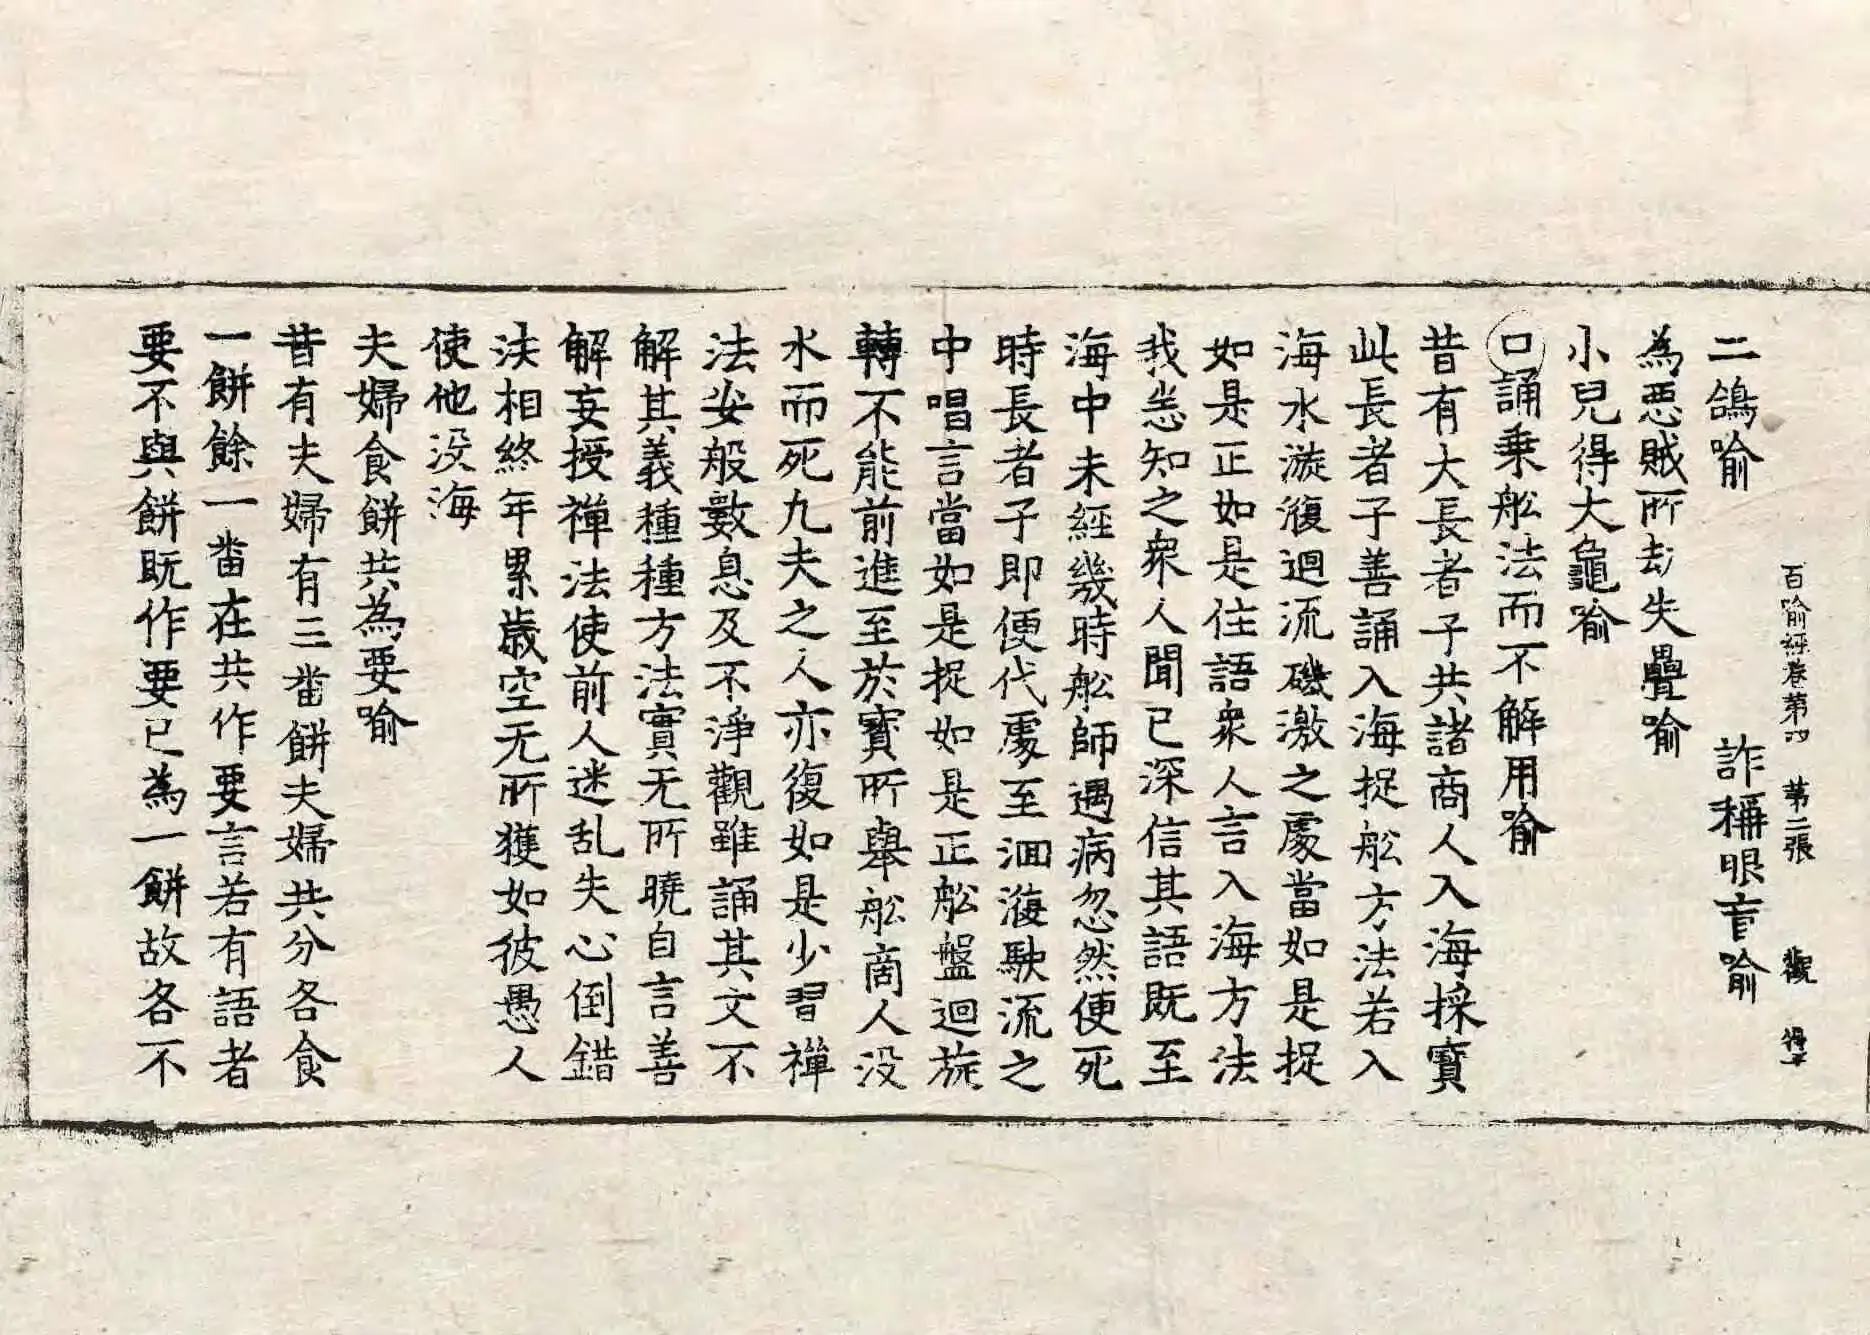 百喻經卷第四 苐二張 觀 得𡵨
二鴿喻 詐稱眼盲喻
為惡賊所刼失㲲喻
小兒得大龜喻
口誦乗舩法而不解用喻
昔有大長者子共諸商人入海採寳
此長者子善誦入海捉舩方法若入
海水漩澓迴流磯激之處當如是捉
如是正如是住語衆人言入海方法
我悉知之衆人聞已深信其語既至
海中未經幾時舩師遇病忽然便死
時長者子即便代處至洄澓駛流之
中唱言當如是捉如是正舩盤迴旋
轉不能前進至於寳所舉舩商人没
水而死凢夫之人亦復如是少習禪
法安般數息及不淨觀雖誦其文不
解其義種種方法實无所曉自言善
解妄授禪法使前人迷乱失心倒錯
法相終年累歲空无所獲如彼愚人
使他没海
夫婦食餅共為要喻
昔有夫婦有三畨餅夫婦共分各食
一餅餘一畨在共作要言若有語者
要不與餅既作要已為一餅故各不